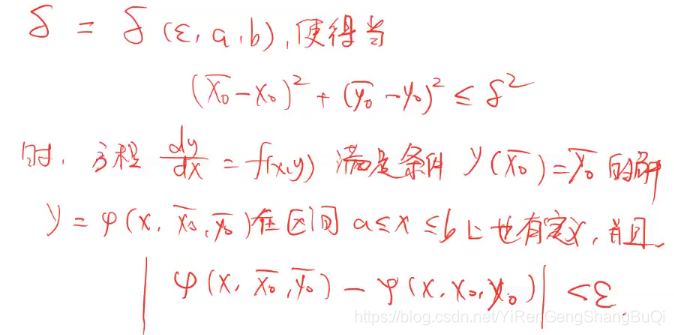 δ = δ(ε, a, b), 使得当
(x̄₀ - x₀)² + (ȳ₀ - y₀)² ≤ δ²
时, 方程 dy/dx = f(x,y) 满足条件 y(x̄₀) = ȳ₀ 的解
y = φ(x, x̄₀, ȳ₀) 在区间 a ≤ x ≤ b 上也有定义, 并且
| φ(x, x̄₀, ȳ₀) - φ(x, x₀, y₀) | < ε.
https://blog.csdn.net/YiRenGengShangBuQi